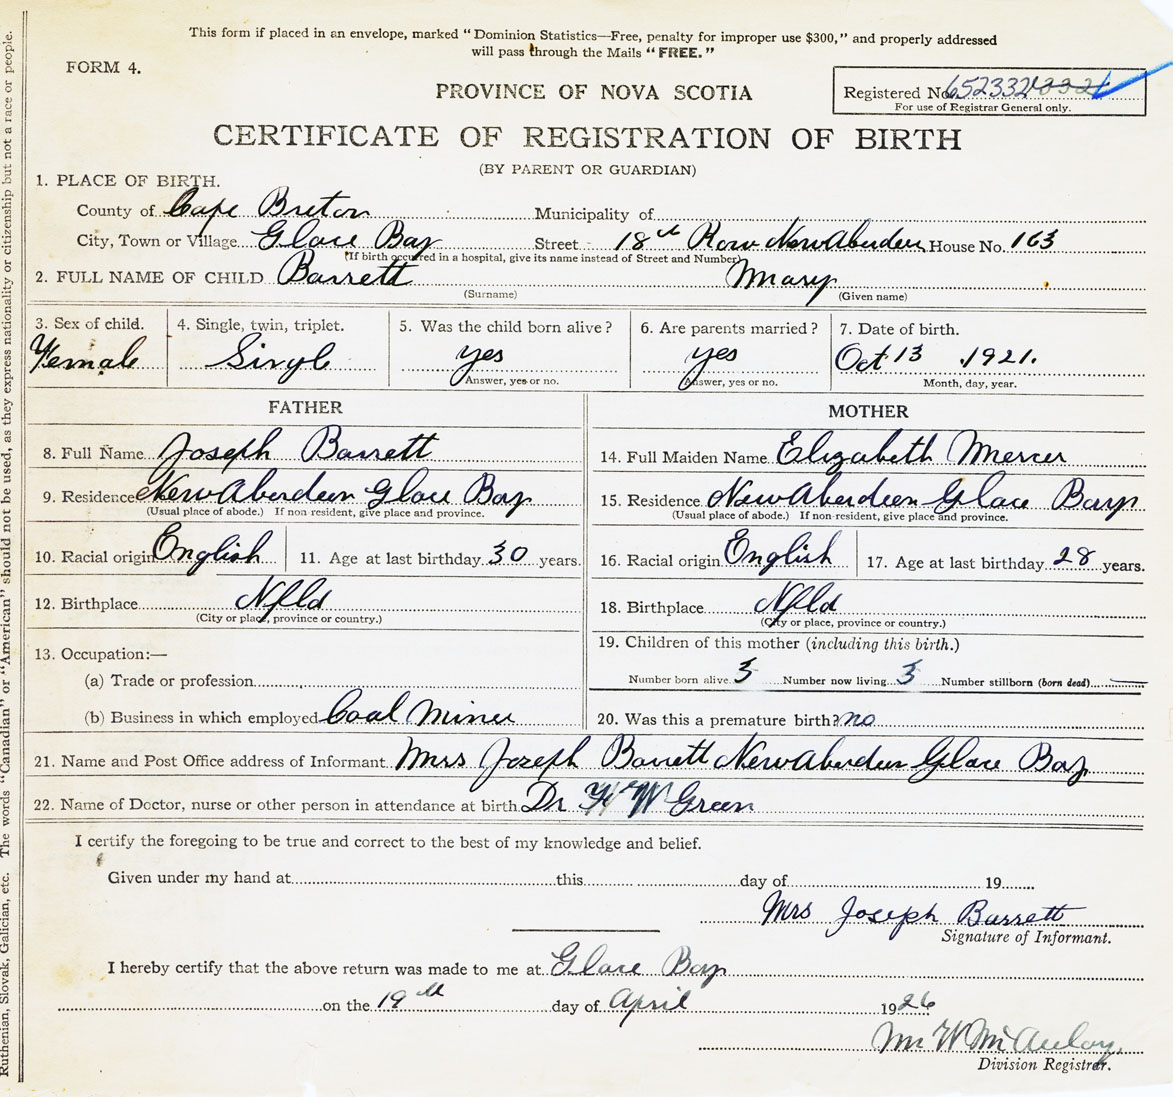 This form if placed in an envelope, marked "Dominion Statistics—Free, penalty for improper use $300," and properly addressed
will pass through the Mails "FREE."
FORM 4.
Registered No. 652332
For use of Registrar General only.
PROVINCE OF NOVA SCOTIA
CERTIFICATE OF REGISTRATION OF BIRTH
(BY PARENT OR GUARDIAN)
1. PLACE OF BIRTH.
County of Cape Breton Municipality of
City, Town or Village Glace Bay Street 18th Row New Aberdeen House No. 163
(If birth occurred in a hospital, give its name instead of Street and Number)
2. FULL NAME OF CHILD Barrett Mary
(Surname) (Given name)
3. Sex of child. 4. Single, twin, triplet. 5. Was the child born alive? 6. Are parents married? 7. Date of birth.
Female Single yes yes Oct 13 1921.
Answer, yes or no. Answer, yes or no. Month, day, year.
FATHER MOTHER
8. Full Name Joseph Barrett 14. Full Maiden Name Elizabeth Mercer
9. Residence New Aberdeen Glace Bay 15. Residence New Aberdeen Glace Bay
(Usual place of abode.) If non-resident, give place and province. (Usual place of abode.) If non-resident, give place and province.
10. Racial origin English 11. Age at last birthday 30 years. 16. Racial origin English 17. Age at last birthday 28 years.
12. Birthplace Nfld 18. Birthplace Nfld
(City or place, province or country.) (City or place, province or country.)
13. Occupation:— 19. Children of this mother (including this birth.)
(a) Trade or profession Number born alive 3 Number now living 3 Number stillborn (born dead) —
(b) Business in which employed Coal Miner 20. Was this a premature birth? no
21. Name and Post Office address of Informant Mrs Joseph Barrett New Aberdeen Glace Bay
22. Name of Doctor, nurse or other person in attendance at birth Dr W Green
I certify the foregoing to be true and correct to the best of my knowledge and belief.
Given under my hand at this day of 19
Mrs Joseph Barrett
Signature of Informant.
I hereby certify that the above return was made to me at Glace Bay
on the 19th day of April 1926
McAulay
Division Registrar.
Ruthenian, Slovak, Galician, etc. The words "Canadian" or "American" should not be used, as they express nationality or citizenship but not a race or people.